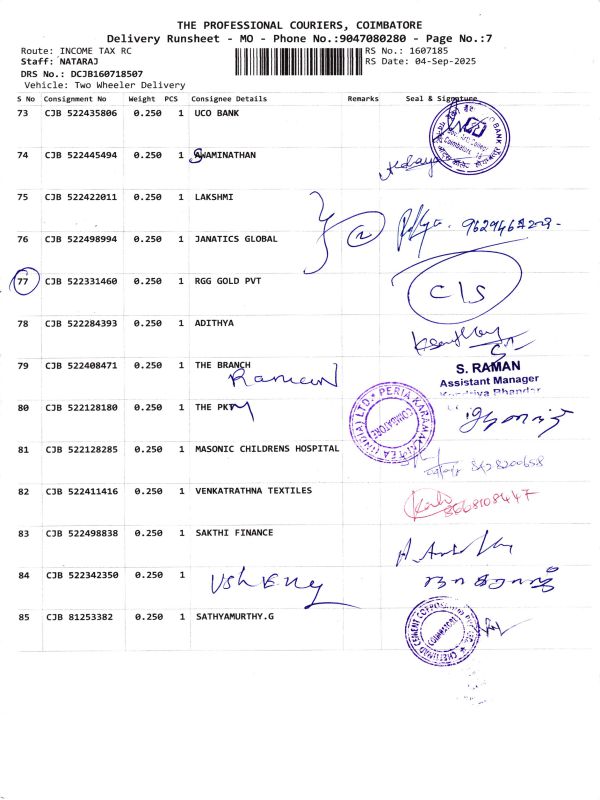 THE PROFESSIONAL COURIERS, COIMBATORE
Delivery Runsheet - MO - Phone No.:9047080280 - Page No.:7
Route: INCOME TAX RC RS No.: 1607185
Staff: NATARAJ RS Date: 04-Sep-2025
DRS No.: DCJB160718507
Vehicle: Two Wheeler Delivery
S No Consignment No Weight PCS Consignee Details Remarks Seal & Signature
73 CJB 522435806 0.250 1 UCO BANK
74 CJB 522445494 0.250 1 SWAMINATHAN
75 CJB 522422011 0.250 1 LAKSHMI
76 CJB 522498994 0.250 1 JANATICS GLOBAL 2
77 CJB 522331460 0.250 1 RGG GOLD PVT C/S
78 CJB 522284393 0.250 1 ADITHYA
79 CJB 522408471 0.250 1 THE BRANCH S. RAMAN
Assistant Manager
80 CJB 522128180 0.250 1 THE PKT
PERIA KARAMALAI TEA (INDIA) LTD. COIMBATORE
81 CJB 522128285 0.250 1 MASONIC CHILDRENS HOSPITAL
82 CJB 522411416 0.250 1 VENKATRATHNA TEXTILES
8668108447
83 CJB 522498838 0.250 1 SAKTHI FINANCE
84 CJB 522342350 0.250 1
85 CJB 81253382 0.250 1 SATHYAMURTHY.G